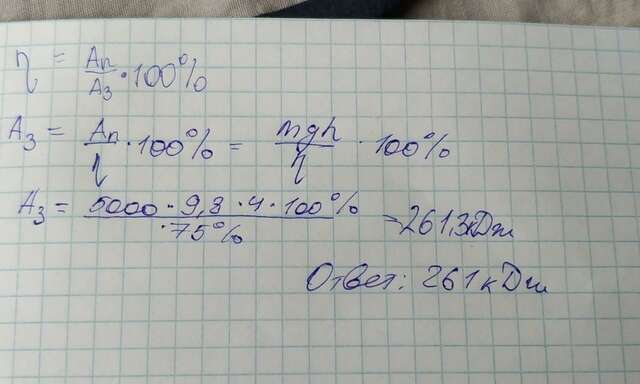 η = Aп/Aз · 100%
Aз = Aп/η · 100% = mgh/η · 100%
Aз = 5000 · 9,8 · 4 · 100% / ·75% = 261,3кДж
Ответ: 261 кДж